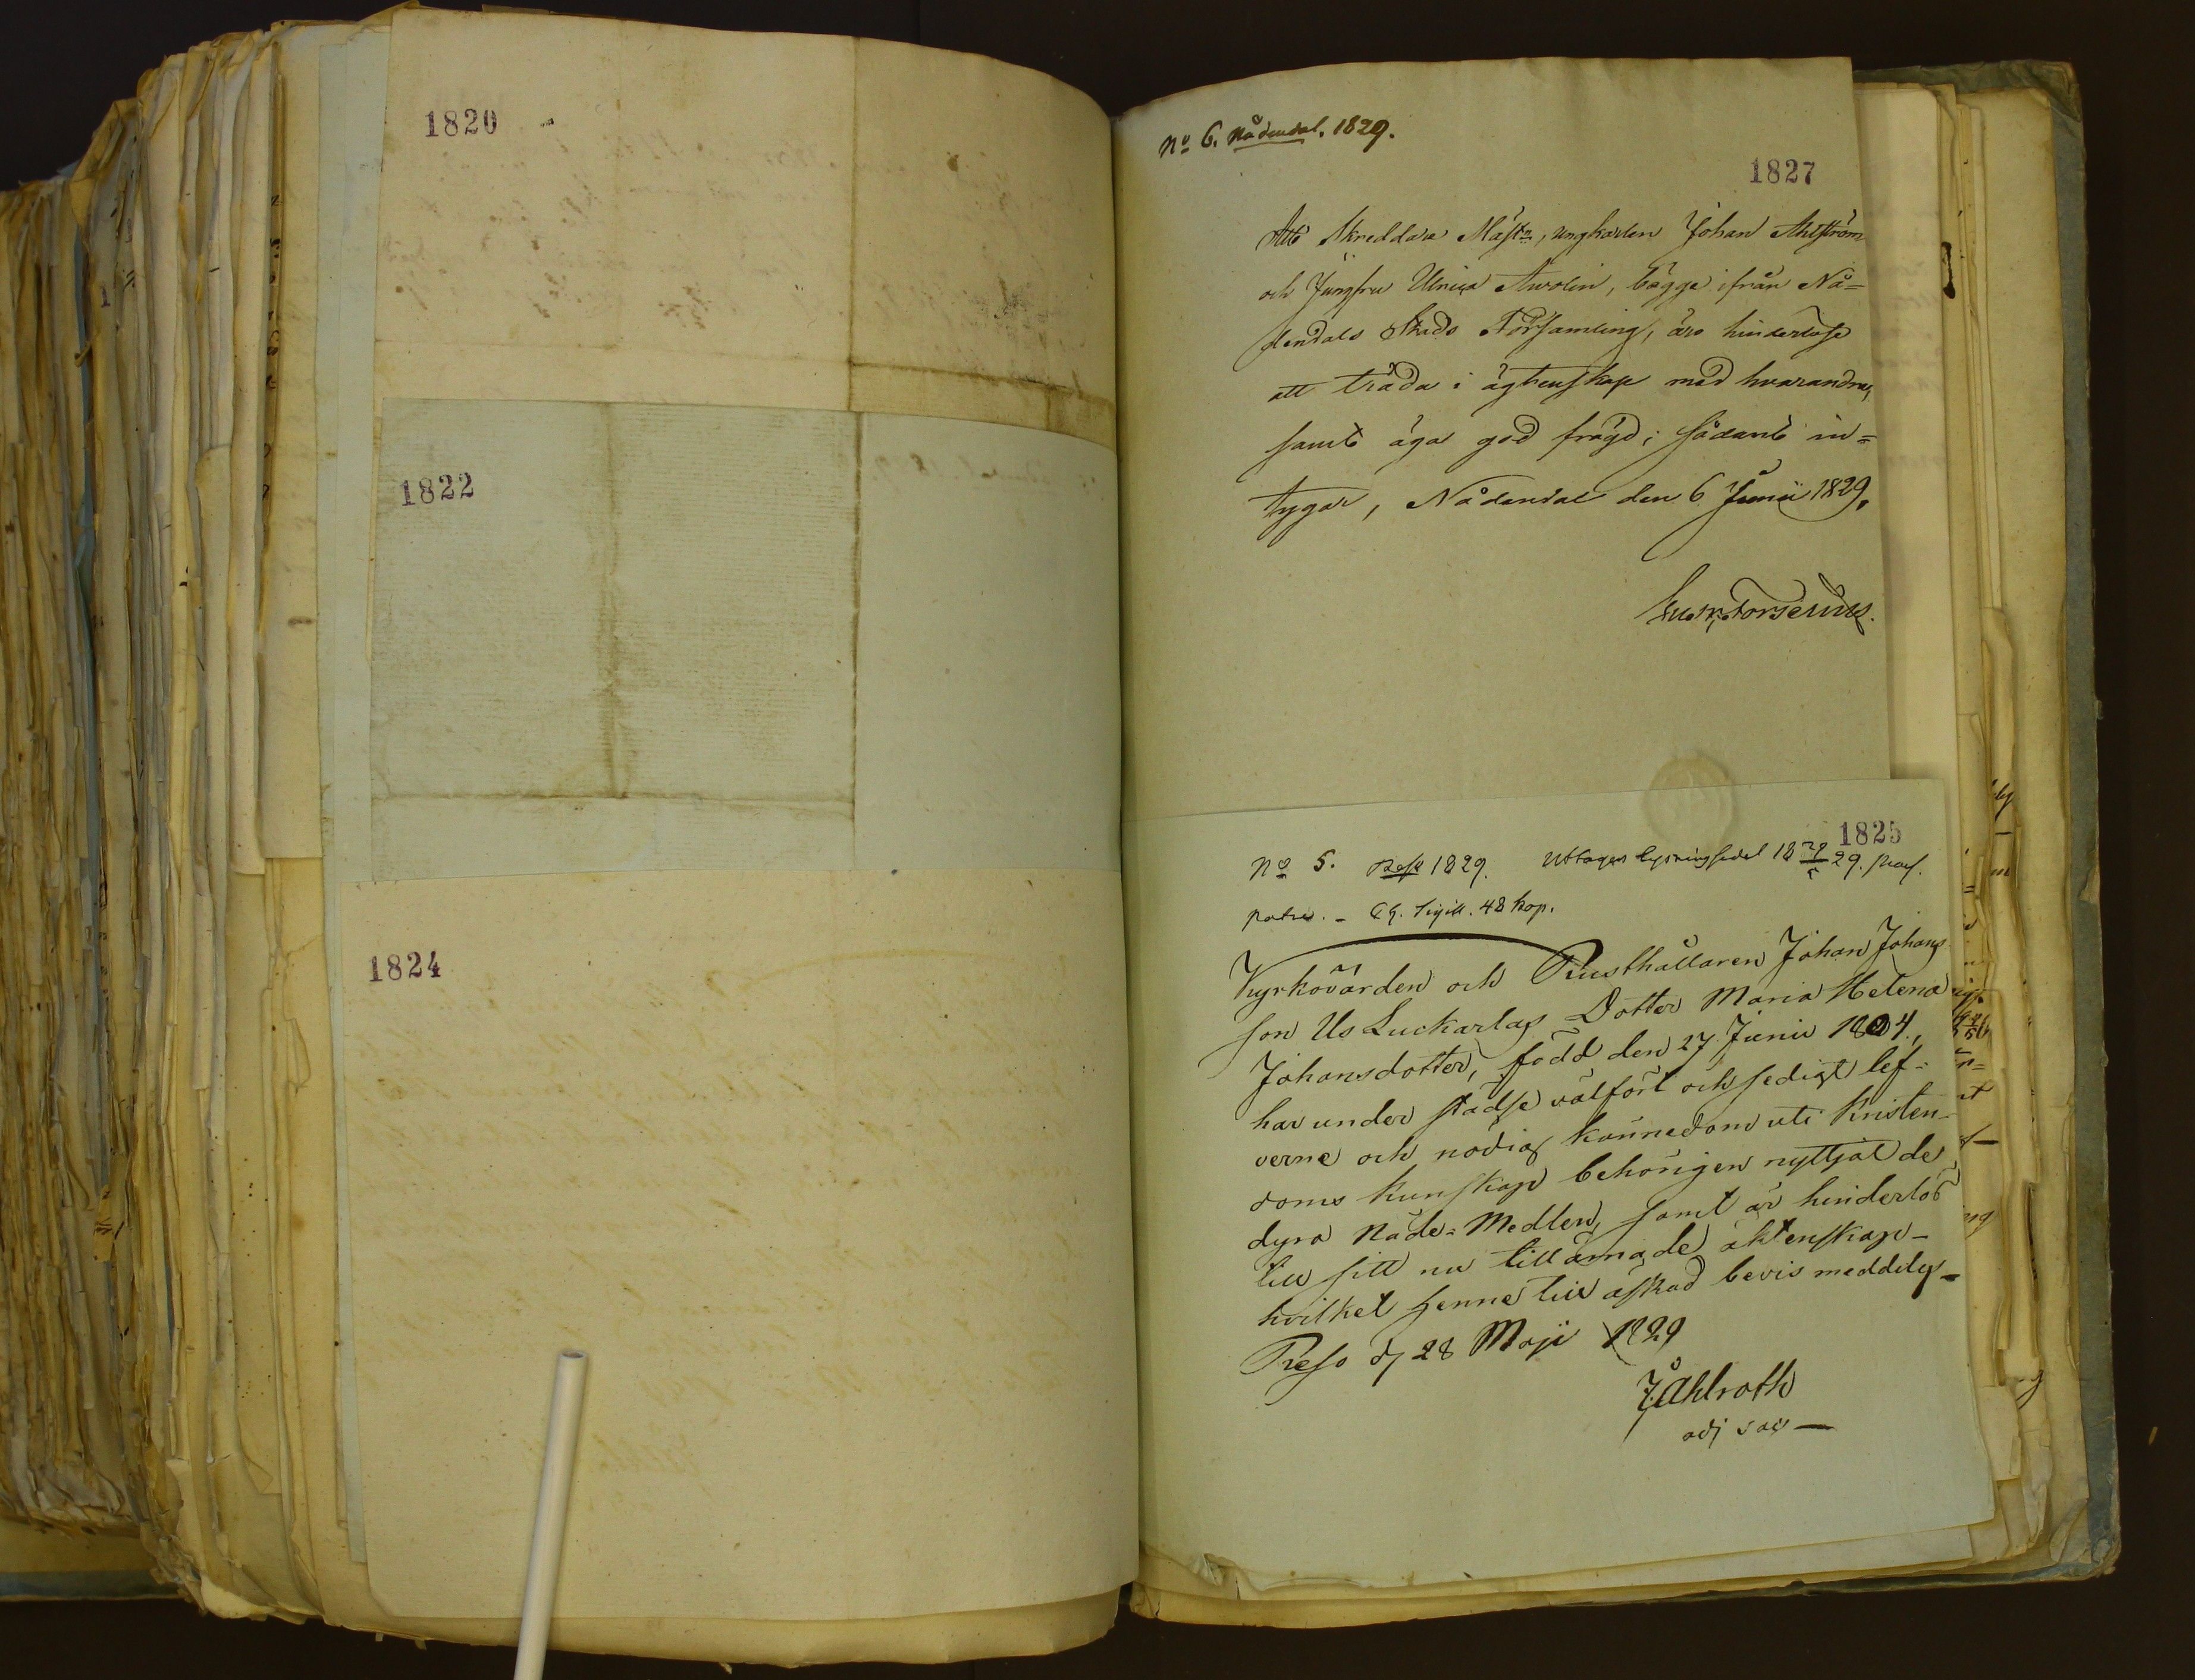 1820
1822
1824
No 6. Nådendal. 1829.
1827
Att Skreddare Mästn, ungkarlen Johan Ahlström
och Jungfru Ulrica Avolin, bägge ifrån Nå=
dendals Stads Församling, äro hinderlöse
att träda i ägtenskap med hvarandra,
samt äga god frägd; sådant in=
tygar, Nådendal den 6 Junii 1829.
1825
No 5. Reso 1829. Uttagen lysningsedel 18 29/5 29.
Sigill. 48 kop.
Kyrkovärden och Rusthållaren Johan Johans
son Us Luckarlas Dotter Maria Helena
Johansdotter, född den 27 Junii 1804,
har under städse välfört och sedigt lef-
verne och nödig kännedom uti Kristen-
doms kunskap behörigen nyttjat de
dyra Nåde=Medlen, samt är hinderlös
till sitt nu tillämnade äktenskap-
hvilket henne till äskad bevis meddelas-
Reso d 28 Maji 1829
J. Ahlroth
adj sac